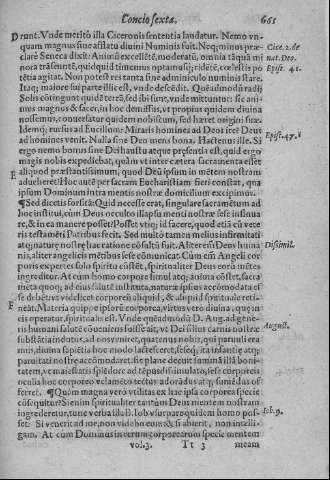 Concio sexta. 661
Drunt. Vnde meritò illa Ciceronis sententia laudatur. Nemo vn-
quam magnus sine afflatu diuini Numinis fuit. Neq; minus præ- Cice. 2. de
clarè Seneca dixit: Animũ excellẽtẽ, moderatũ, omnia tãquã mi nat. Deo.
nora trãseuntẽ, quidquid timemus optamusq; ridẽtẽ, cœlestis po Epist. 41.
tẽtia agitat. Non potest res tanta sine adminiculo numinis stare.
Itaq; maiore sui parte illic est, vnde descẽdit. Quẽadmodũ radij
Solis cõtingunt quidẽ terrã, sed ibi sunt, vnde mittuntur: sic ani-
mus magnus & sacer, in hoc demissus, vt propius quidem diuina
nossemus, conuersatur quidem nobiscum, sed hæret origini suæ.
Idemq; rursus ad Lucillum: Miraris homines ad Deos ire? Deus
ad homines venit. Nulla sine Deo mens bona. Hactenus ille. Si Epist. 47.
ergo nemo bonus sine Dei haustu atque præsentia est, quid ergo
magis nobis expediebat, quàm vt inter cætera sacramenta esset
E aliquod præstantissimum, quod Deũ ipsum in mẽtem nostram
adueheret? Hoc autẽ per sacram Eucharistiam fieri constat, qua
ipsum Dominum intra mentis nostræ domicilium excipimus.
¶ Sed dicetis forsitã: Quid necesse erat, singulare sacramẽtum ad
hoc institui, cùm Deus occulto illapsu menti nostræ sese insinua
re, & in ea manere posset? Posset vtiq; id facere, quod etiã cũ vete
ris testamẽti Patribus fecit. Sed multò tamen melius infirmitati
atq; naturę nostrę hac ratione cõsultũ fuit. Aliter enĩ Deus huma Dissimil.
nis, aliter angelicis mẽtibus sese cõmunicat. Cùm enĩ Angeli cor
poris expertes solo spiritu cõstẽt, spiritualiter Deus eorũ mẽtes
ingreditur. At cum homo corpore simul atq; anima cõstet, sacra
mẽta quoq; ad eius salutẽ instituta, naturæ ipsius accõmodata es
se debẽt: vt videlicet corporeũ aliquid, & aliquid spirituale reti-
F neãt. Materia quippe ipsorũ corporea, virtus vero diuina, quę in
eis operatur, spiritualis est. Vnde quẽadmodũ D. Aug. ad gene- August.
ris humani salutẽ cõueniens fuisse ait, vt Dei filius carnis nostræ
substãtiã indutus, ad nos veniret, quatenus nobis, qui paruuli era
mus, diuina sapiẽtia hoc modo lactesceret, seseq; ita infantię atq;
paruitati nostrę accõmodaret: sic planè decuit summã illã boni-
tatem, vt maiestatis splẽdore ad tẽpus dissimulato, sese corporeis
oculis hoc corporeo velamẽto tectũs adorãdus atq; sumẽdus of
ferret. ¶ Quòm magna verò vtilitas ex hac ipsa corporea specie
cõsequitur? Si enim spiritualiter tantùm Deus mentem nostram
ingrederetur, tunc verba illa B. Iob vsurpare quidem homo pos- Iob. 9.
set: Si venerit ad me, non videbo eum: & si abierit, non intelli-
gam. At cum Dominus in verum corporearum specie mentem
vol. 3. Tt 3 meam